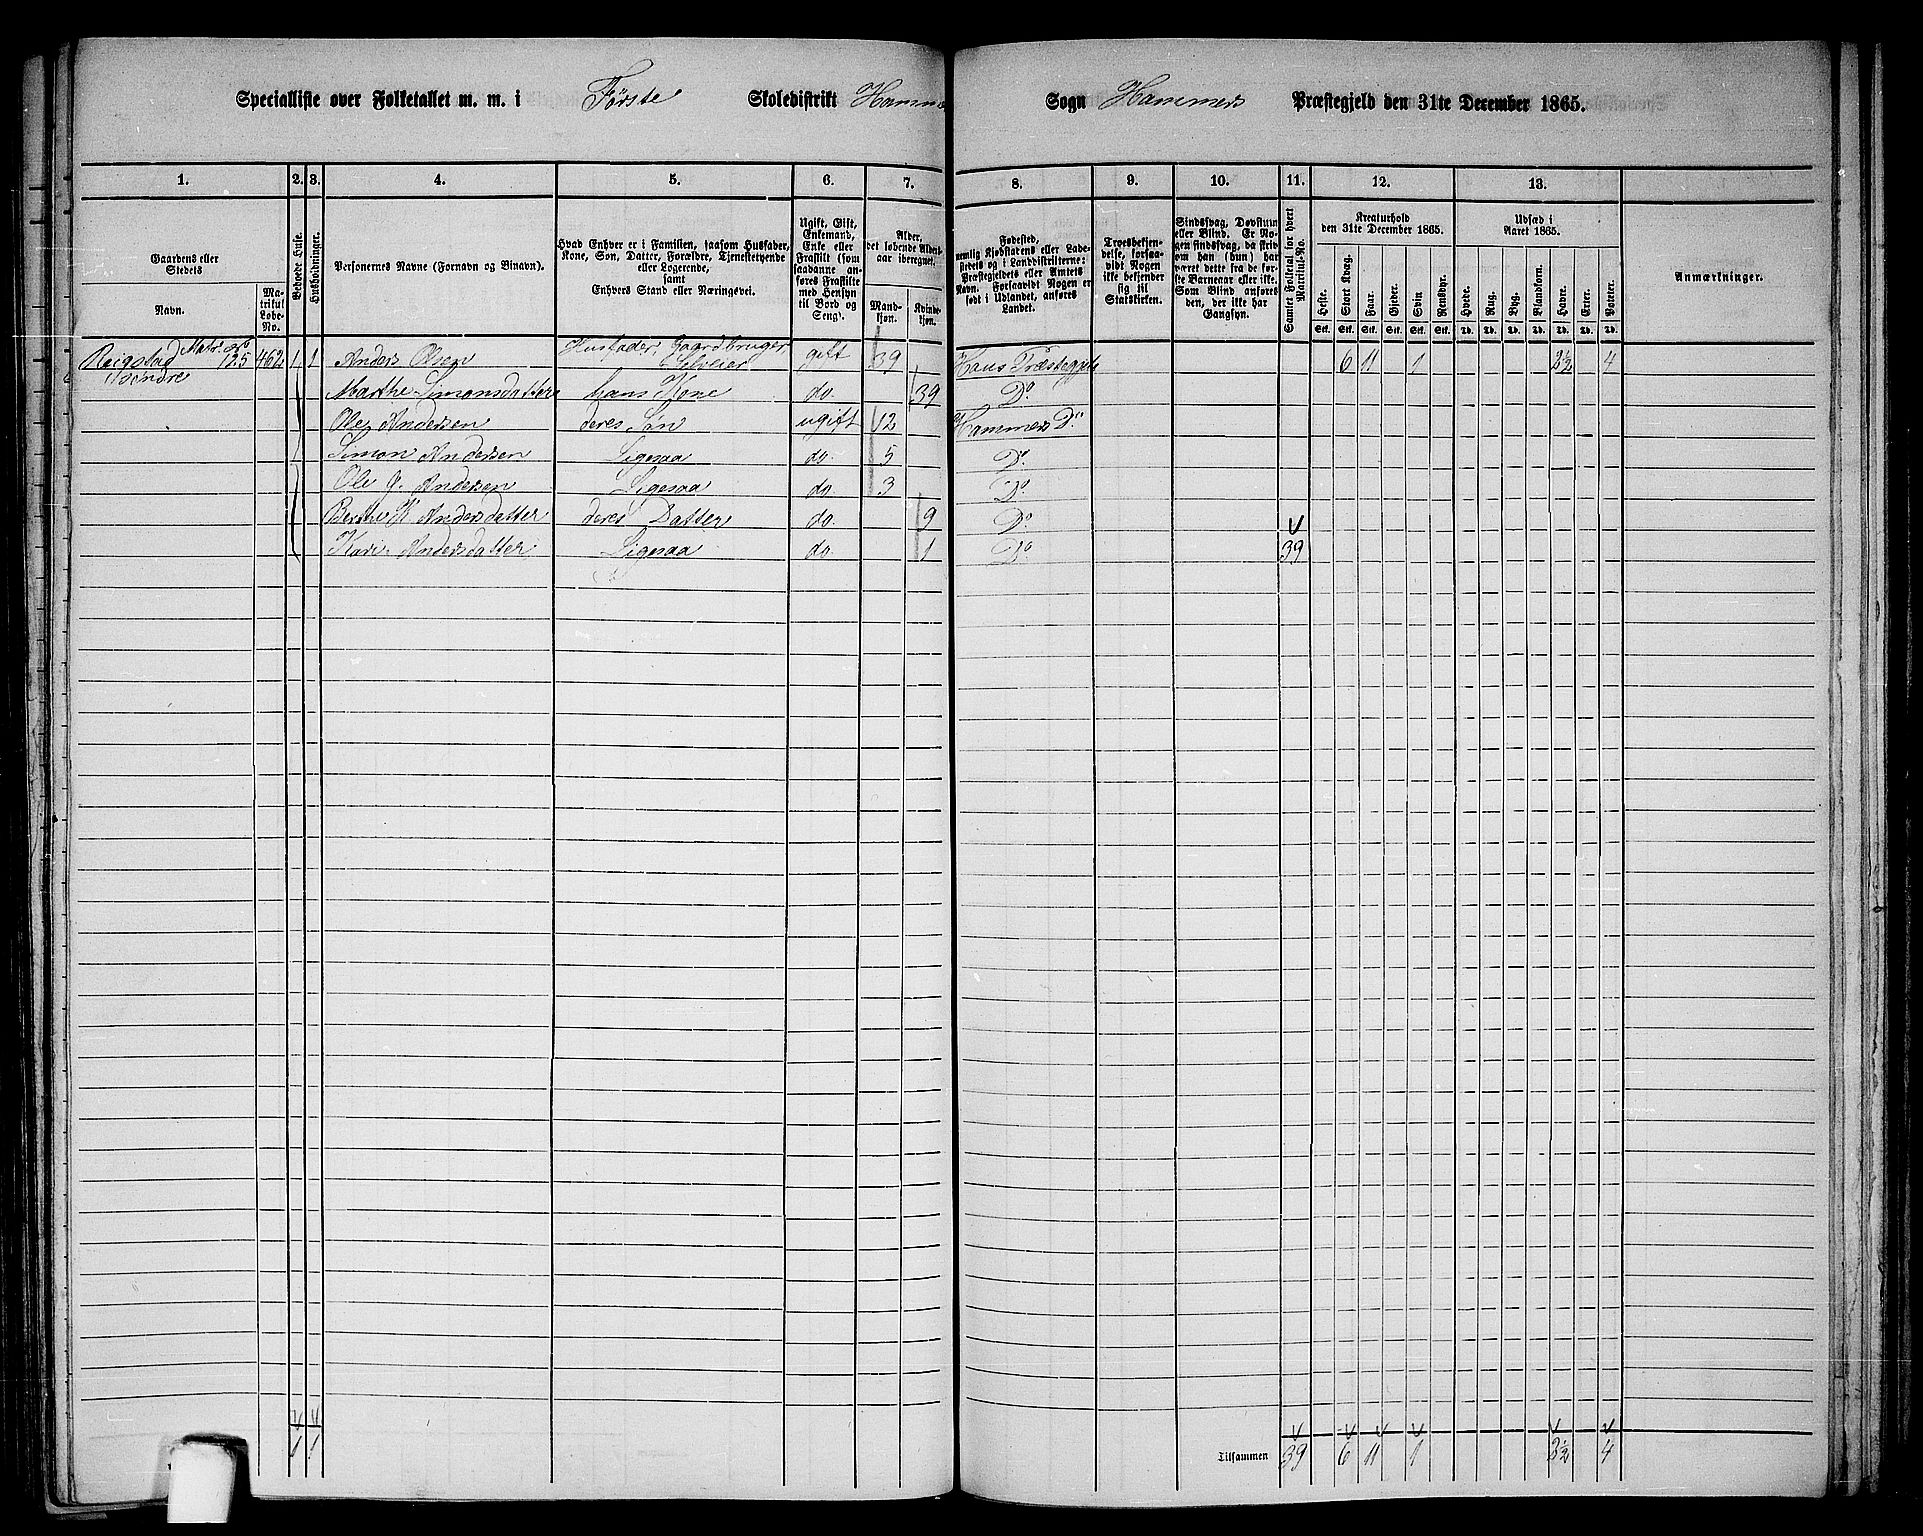 Specialliste over Folketallet m. m. i Første Skoledistrikt Hammers Sogn Hammers Præstegjeld den 31te December 1865.
1. 2. 3. 4. 5. 6. 7. 8. 9. 10. 11. 12. 13.
Gaardens eller Stedets
Navn.
Matrikul Løbe-No.
Beboede Huse.
Husholdninger.
Personernes Navne (Fornavn og Binavn).
Hvad Enhver er i Familien, saasom Husfader, Kone, Søn, Datter, Forældre, Tjenestetyende eller Logerende,
samt
Enhvers Stand eller Næringsvei.
Ugift, Gift, Enkemand, Enke eller Fraskilt (som saadanne anføres Fraskilte med Hensyn til Bord og Seng).
Alder, det løbende Aldersaar iberegnet.
Mandkjøn.
Kvindekjøn.
Fødested, nemlig Kjøbstadens eller Ladestedets og i Landdistrikterne: Præstegjeldets eller Amtets Navn. Forsaavidt Nogen er født i Udlandet, anføres Landet.
Troesbekjendelse, forsaavidt Nogen ikke bekjender sig til Statskirken.
Sindssvag, Døvstum eller Blind. Er Nogen sindssvag, da skrives om han (hun) har været dette fra de første Barneaar eller ikke. Som Blind anføres den, der ikke har Gangsyn.
Samlet Folketal for hvert Matrikul-No.
Kreaturhold
den 31te December 1865.
Heste. Stort Kvæg. Faar. Gjeder. Svin Rensdyr.
Stk. Stk. Stk. Stk. Stk. Stk.
Udsæd i
Aaret 1865.
Hvede. Rug. Byg. Blandkorn. Havre. Erter. Poteter.
Td. Td. Td. Td. Td. Td. Td.
Anmærkninger.
Matr. No Husfader, Gaardbruger
125 462 1 1 Anders Olsen Selveier gift 39 Haus Præstegjeld 6 11 1 2½ 4
Søndre
Marthe Simonsdatter hans Kone do. 39 Do.
Ole Andersen deres Søn ugift 12 Hammers Do.
Simon Andersen Ligesaa do. 5 Do.
Ole J. Andersen Ligesaa do. 3 Do.
Berthe K Andersdatter deres Datter do. 9 Do.
Kari Andersdatter Ligesaa do. 1 Do. 39
1 1 Tilsammen 39 6 11 1 2½ 4